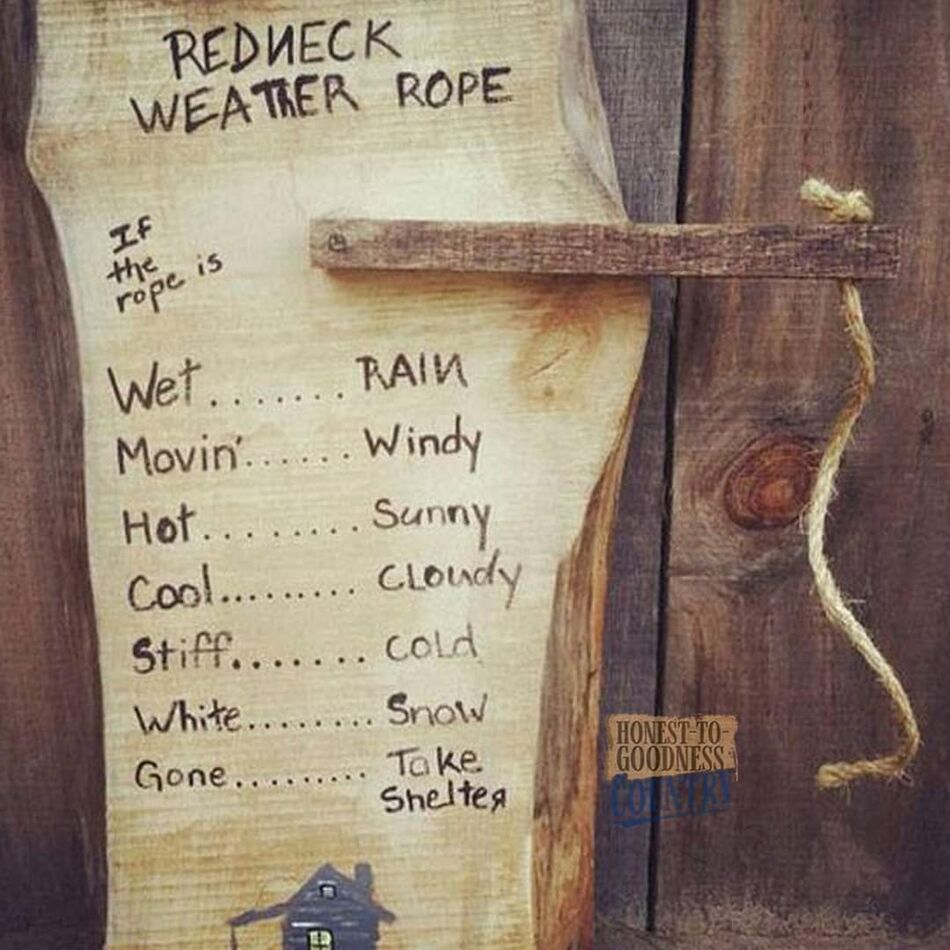 REDNECK
WEATHER ROPE
If
the
rope is
Wet.......RAIN
Movin'......Windy
Hot........Sunny
Cool.........CLoudy
Stiff.......COLd
White........Snow
Gone.........Take
Shelter
HONEST-TO-
GOODNESS
COUNTRY